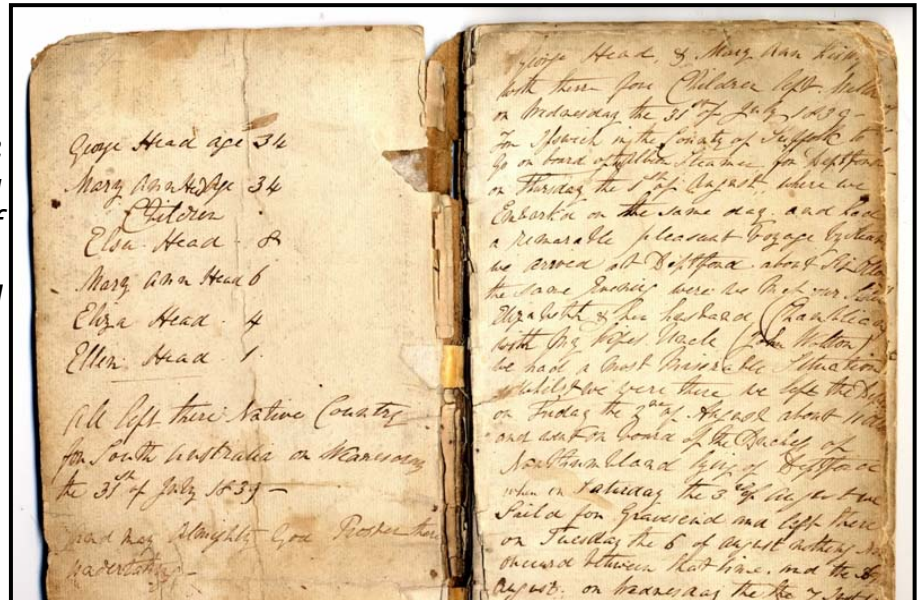 George Head age 34
Mary Ann Head Age 34
Children
Elsa Head - 8
Mary Ann Head 6
Eliza Head - 4
Ellen Head 1.
All left there Native Country
for South Australia on
the 31st of July 1839 —
and may Almighty God Prosper there
undertaking —
George Head, & Mary Ann
with there four Children left
on Wednesday the 31st of July 1839 -
For Ipswich in the County of Suffolk to
go on board of Steamer for Deptford
on Thursday the 1st of August, where we
Embarkd on the same day, and had
a remarable pleasant Voyage by
we arrived at Deptford about
the same Evening were we met our Sister
Elizabeth & her husband
with my Wifes Uncle (John Wilton)
we had a most miserable Situation
whilst we were there we left the
on Friday the 2nd of August about
and went on board of the Duches of
Northumbland lying of Deptford
when on Saturday the 3rd of August we
Saild for Gravesend and left there
on Tuesday the 6 of august nothing
occured between that time, and the
August. on Wednesday the the 7